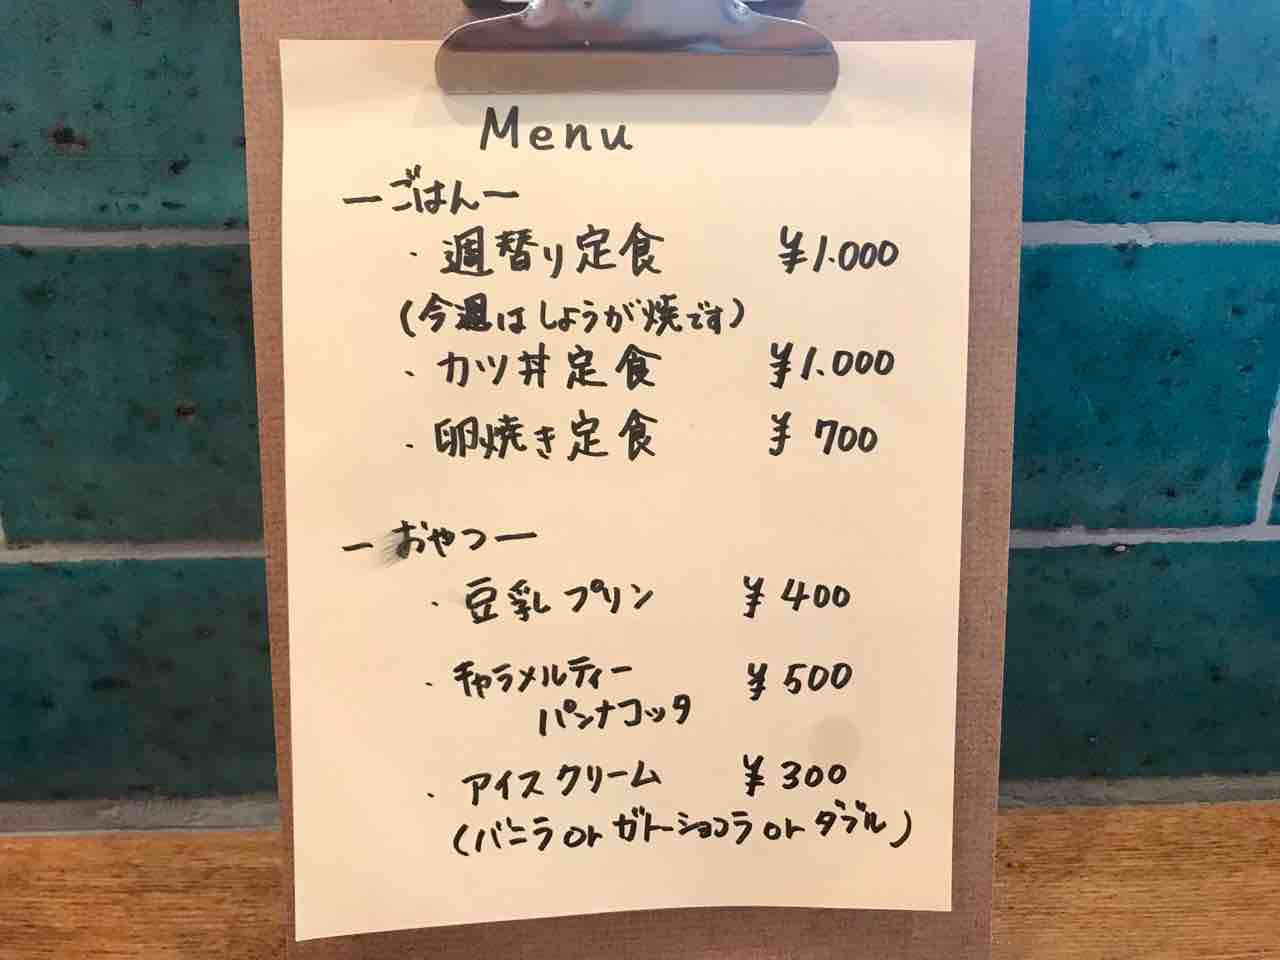 Menu
ーごはんー
・週替り定食 ¥1.000
(今週はしょうが焼です)
・カツ丼定食 ¥1.000
・卵焼き定食 ¥700
ーおやつー
・豆乳プリン ¥400
・チャラメルティー ¥500
パンナコッタ
・アイスクリーム ¥300
(バニラorガトーショコラorダブル)